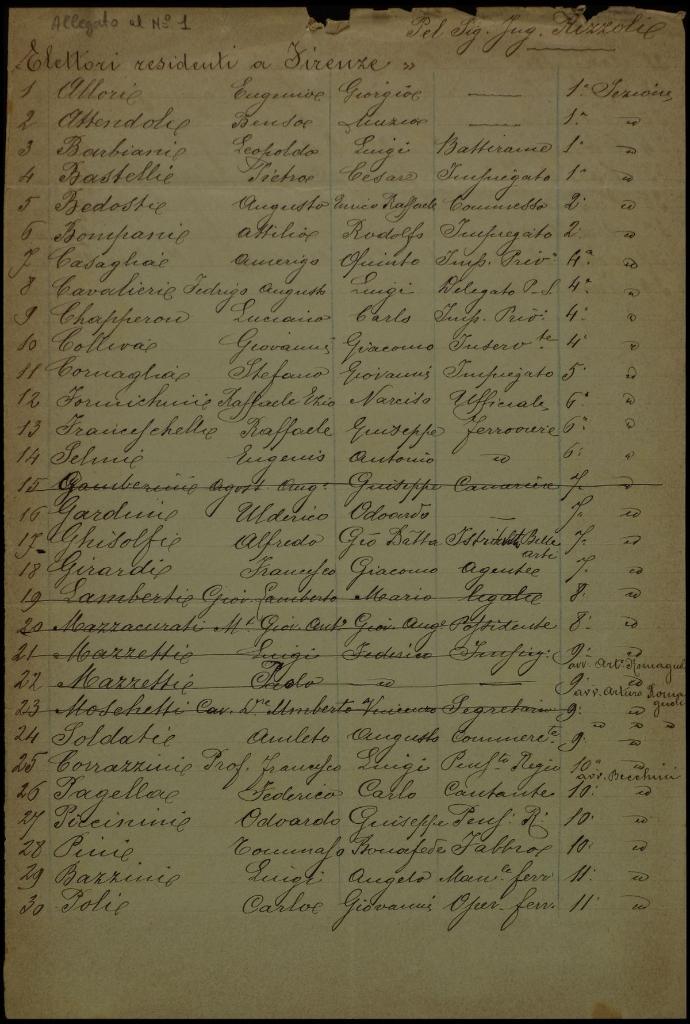 Allegato al No 1
Pel Sig. Ing. Rizzoli
Elettori residenti a Firenze "
1 Allori Eugenio Giorgio — 1a Sezione
2 Attendoli Benso Muzio — 1a "
3 Barbiani Leopoldo Luigi Battirame 1a "
4 Bastelli Pietro Cesare Impiegato 1a "
5 Bedosti Augusto Enrico Raffaele Commesso 2a "
6 Bompani Attilio Rodolfo Impiegato 2a "
7 Casaglia Amerigo Quinto Imp. Privo 4a "
8 Cavalieri Fedrigo Augusto Luigi Delegato P.S. 4a "
9 Chapperon Luciano Carlo Imp. Privo 4a "
10 Colliva Giovanni Giacomo Inservte 4a "
11 Cornaglia Stefano Giovanni Impiegato 5a "
12 Formichini Raffaele Ezio Narciso Ufficiale 6a "
13 Franceschelli Raffaele Giuseppe ferroviere 6a "
14 Selmi Eugenio Antonio " 6a "
15 Gamberini Agost. Augo Giuseppe 7a "
16 Gardini Ulderico Odoardo — 7a "
17 Ghisolfi Alfredo Gio Batta Belle arti 7a "
18 Girardi Francesco Giacomo Agente 7a "
19 Lamberti Giov. Lamberto Mario legale 8a "
20 Mazzacurati Giov. Anto Giov. Ange Possidente 8a "
21 Mazzetti Luigi Federico 9a "
avv. Arto Romagnoli
22 Mazzetti Paolo " — 9a "
avv. Arturo Romagnoli
23 Moschetti Cav. Dre Umberto Vincenzo Segretario 9a "
24 Soldati Amleto Augusto Commerte 9a "
25 Corrazzini Prof. Francesco Luigi Pensto Regio 10a "
avv. Becchini
26 Pagella Federico Carlo Cantante 10a "
27 Piccinini Odoardo Giuseppe Pens. R. 10a "
28 Pini Tommaso Bonafede Fabbro 10a "
29 Bazzini Luigi Angelo Manle ferr 11a "
30 Poli Carlo Giovanni Oper. ferr. 11a "